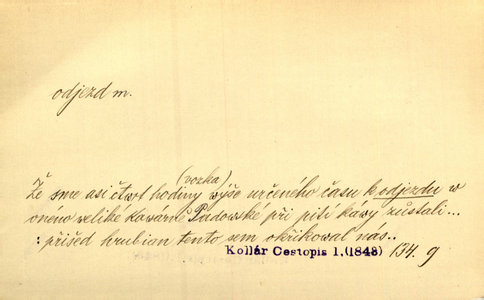 odjezd m.
(vozka)
Že sme asi čtwrt hodiny wýše určeného času k odjezdu w
oneno weliké kawárně Padowské při pití káwy zůstali...
: přišed hrubian tento sem okřikowal nás..
Kollár Cestopis 1.(1843) 134. g